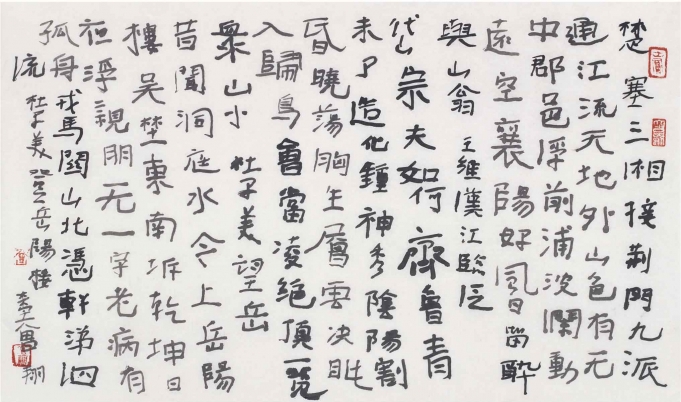 楚塞三湘接荆門九派
通江流天地外山色有无
中郡邑浮前浦波瀾動
遠空襄陽好風日留醉
與山翁 王維漢江臨泛
岱宗夫如何齊魯青
未了造化鍾神秀陰陽割
昏曉蕩胸生層雲决眦
入歸鳥會當凌絶頂一覽
衆山小 杜子美望岳
昔聞洞庭水今上岳陽
樓吴楚東南坼乾坤日
夜浮親朋无一字老病有
孤舟戎馬關山北憑軒涕泗
流 杜子美登岳陽樓